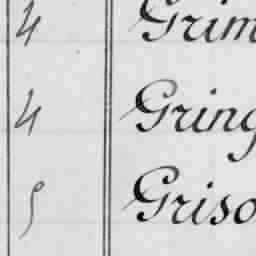 4 Grim
4 Gring
5 Griso